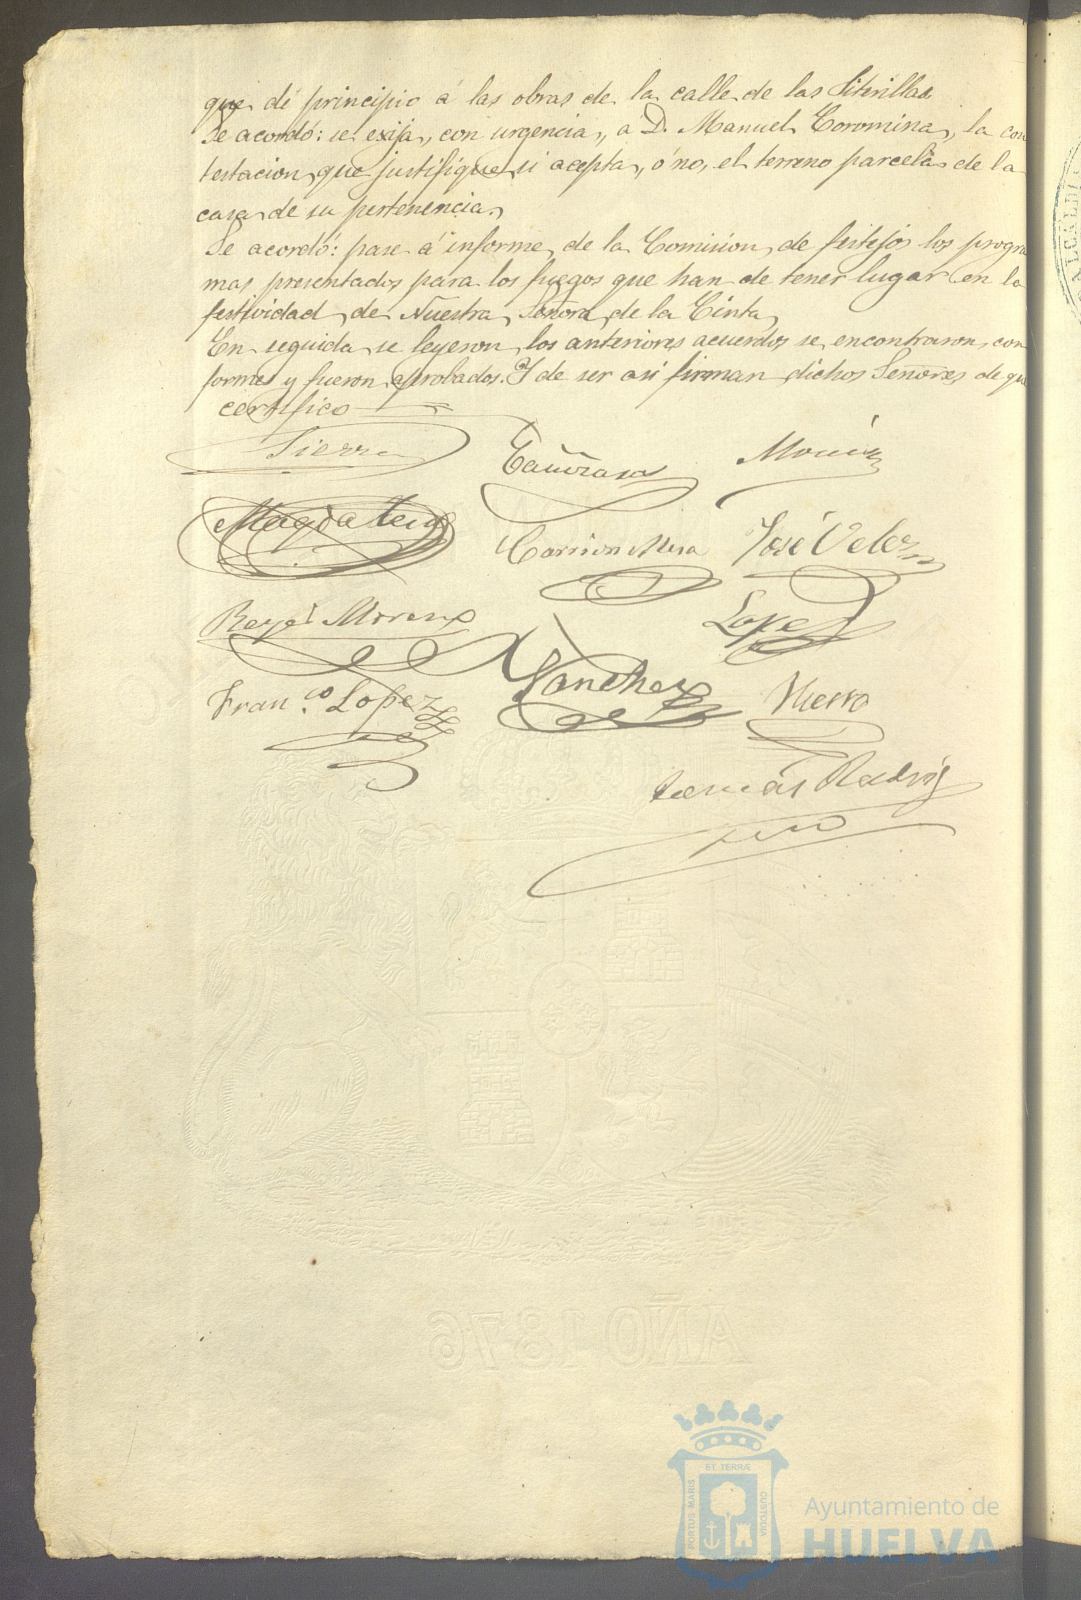 que dé principio á las obras de la calle de las Siterillas
Se acordó: se exija, con urgencia, a D. Manuel Coromina, la con
testacion, que justifique si acepta, ó no, el terreno parcela de la
casa de su pertenencia.
Se acordó: pase á informe de la Comision de festejos los progra
mas presentados para los fuegos que han de tener lugar en la
festividad de Nuestra Señora de la Cinta,
En seguida se leyeron los anteriores acuerdos se encontraron con
formes y fueron aprobados. Y de ser asi firman dichos Señores de que
certifico
Sierra
Morin
Magdaleno
Carrion Mesa
José Velez
Reyes Moreno
Lopez
Sanchez
Fran.co Lopez
Hierro
Tomás
AÑO 1876
PORTUS MARIS
ET TERRÆ
CUSTODIA
Ayuntamiento de
HUELVA